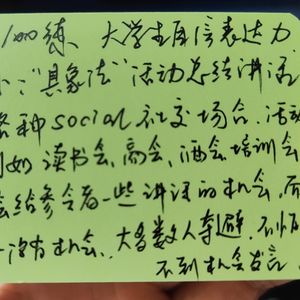 1000练 大学生自信表达力
"具象法"活动总结讲话
各种social社交场合.活动
例如读书会、高会、酒会、培训会
会给参会者一些讲话的机会,而
一没有机会、大多数人夺避、不怕
不到机会发言.